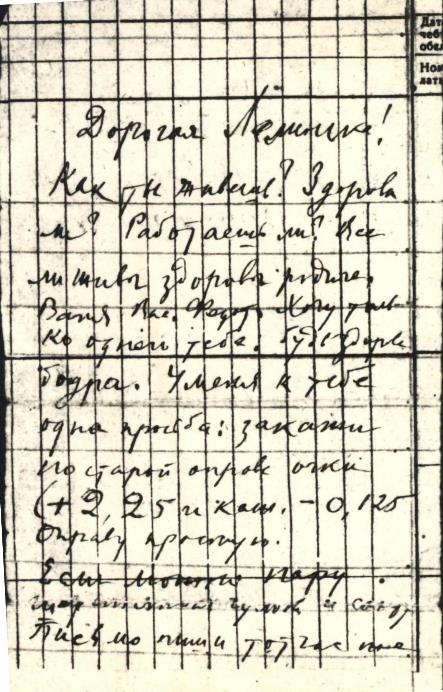 Дат
Ном
лать
Дорогая Лёличка!
Как ты живешь? Здорова
ли? Работаешь ли? Все
ли живы здоровы родные.
Ваня Вас. Хочу толь
ко одной тебе. Будь здорова
бодра. У меня к тебе
одна просьба: закажи
по старой оправе очки
(+2,25 и -0,125
Оправу простую.
Если можно пару
чулок и
Письмо пиши тотчас